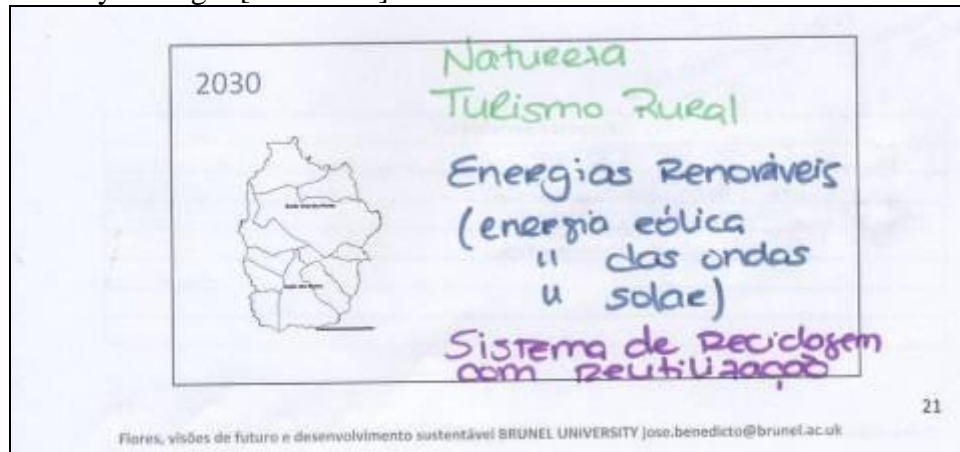 2030
Natureza
Turismo Rural
Energias Renováveis
(energia eólica
" das ondas
" solar)
Sistema de Reciclagem
com Reutilização
21
Flores, visões de futuro e desenvolvimento sustentável BRUNEL UNIVERSITY jose.benedicto@brunel.ac.uk